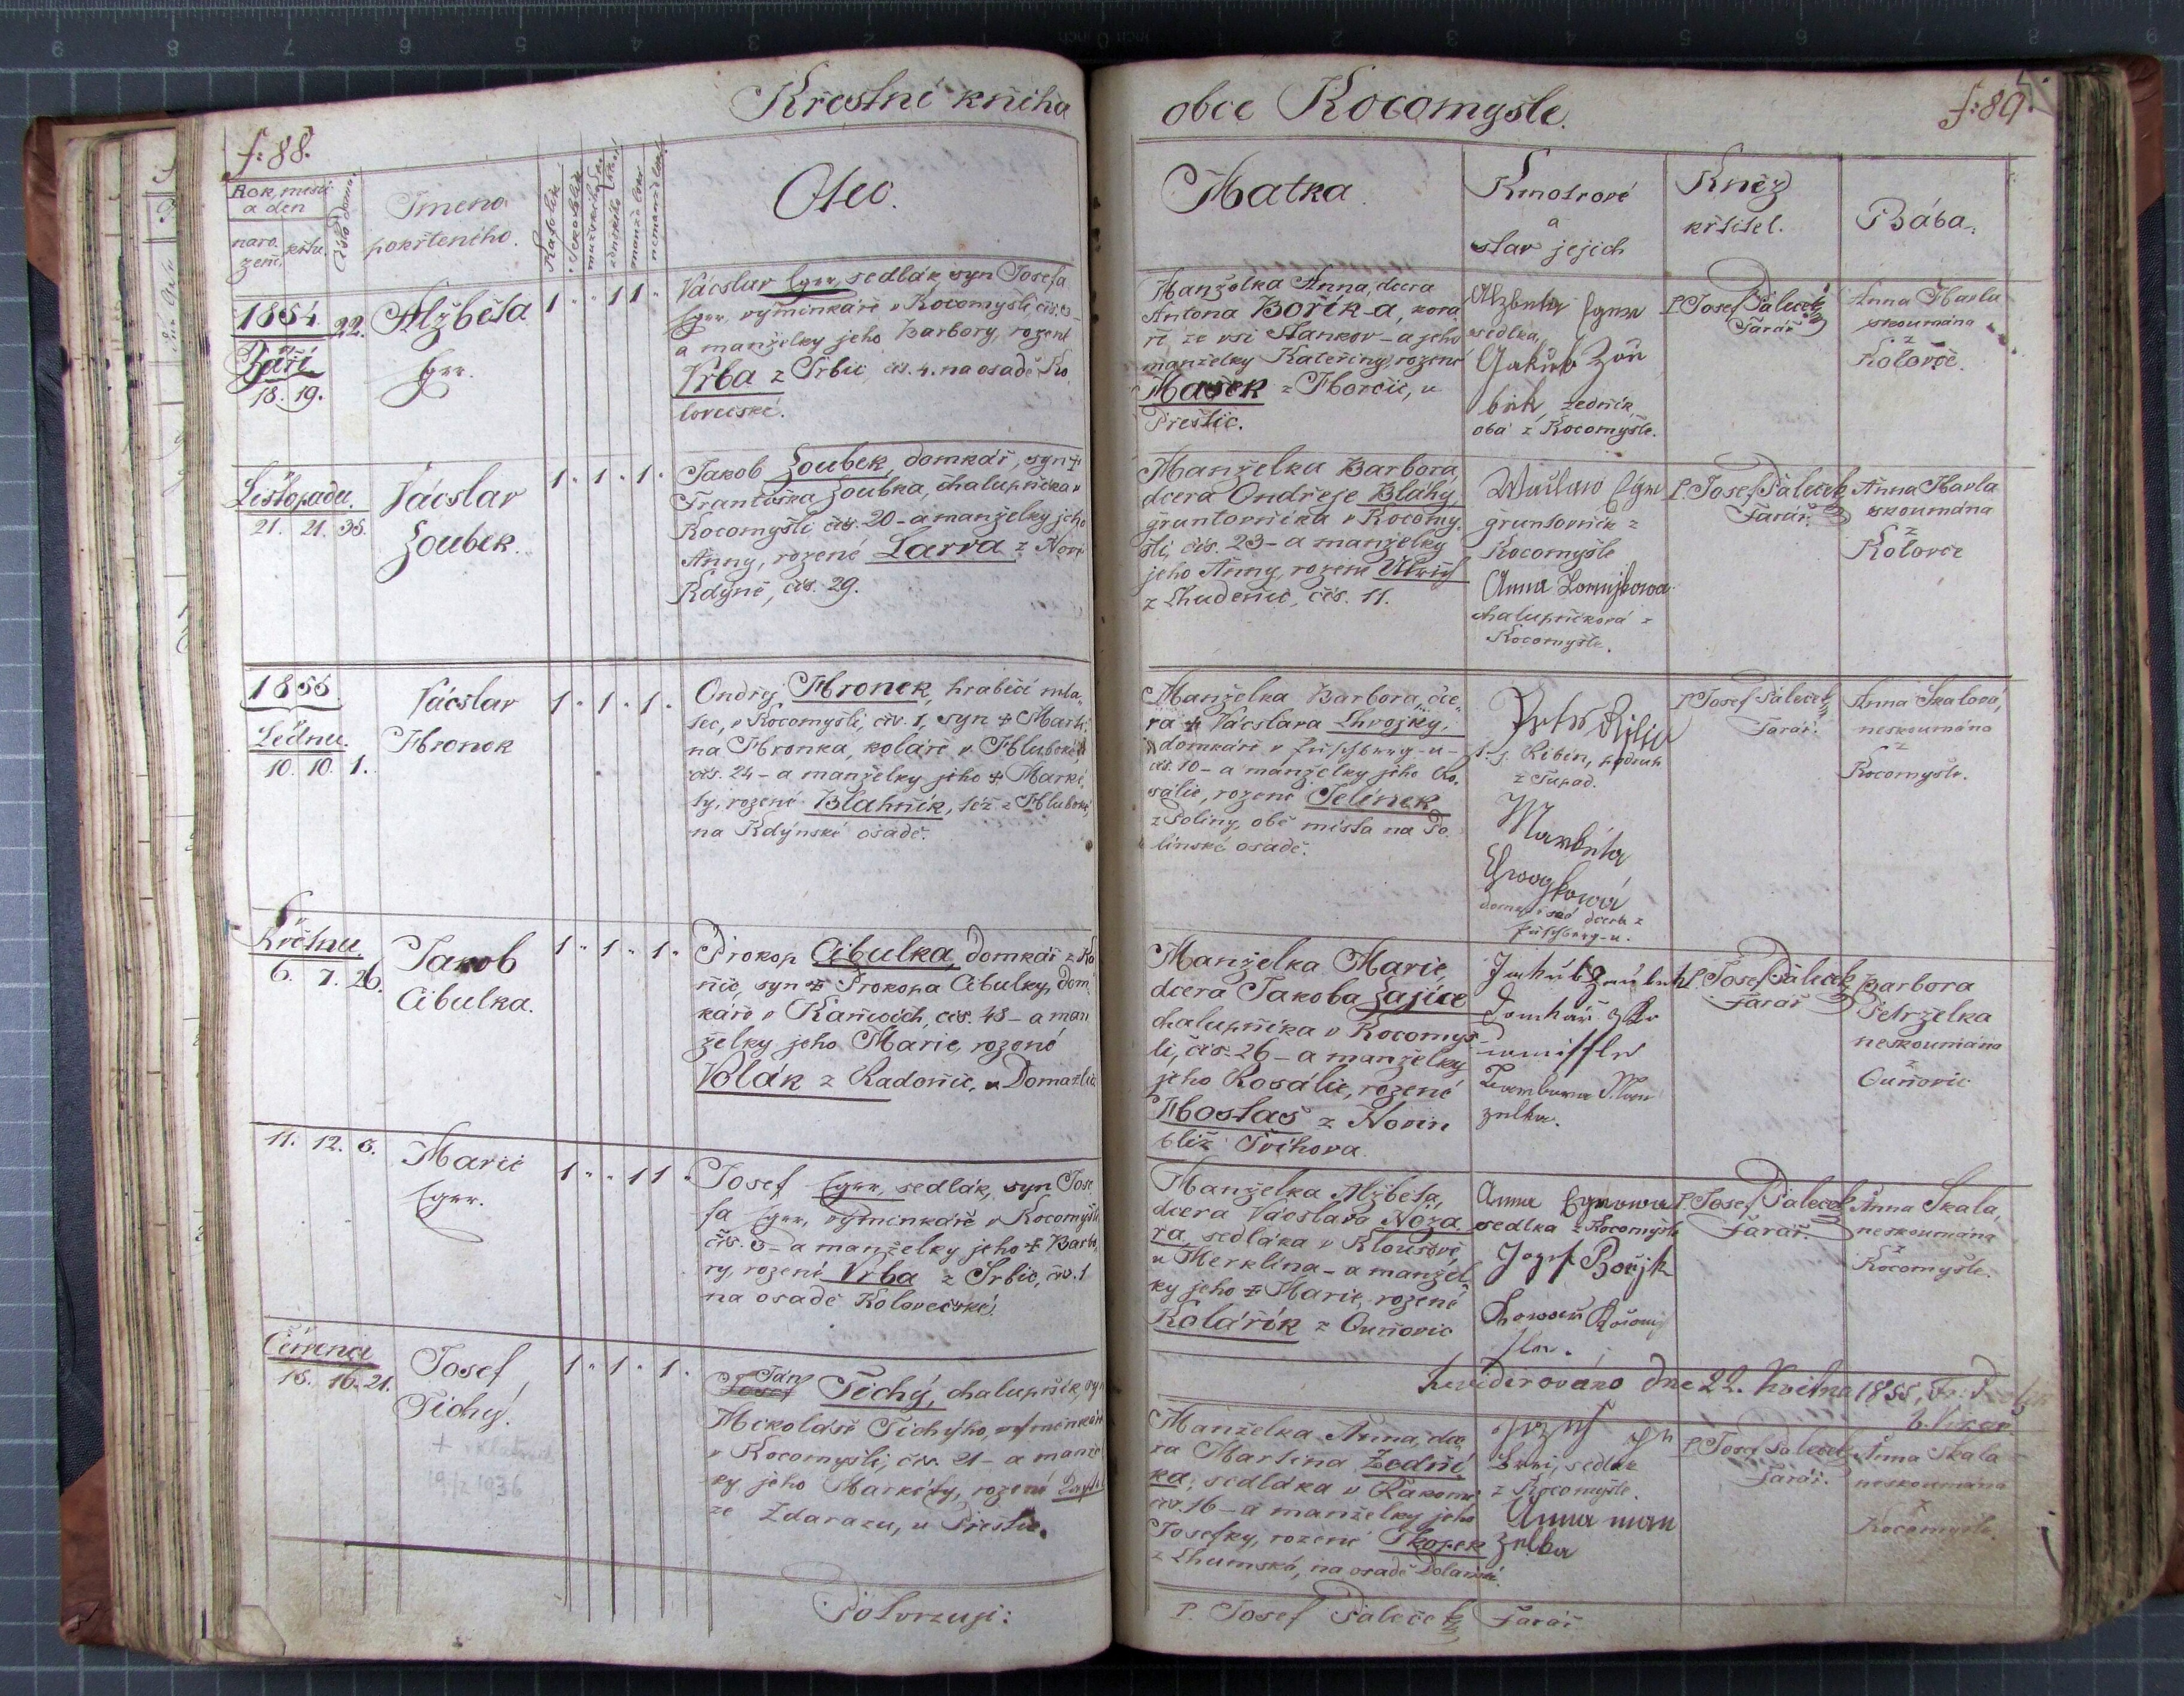 Křestní kniha
f: 88.
Rok, měsíc
a den
naro
zení
křtu.
Číslo domu.
Jmeno
pokřteného.
Katolík
Nekatolík
mužského
ženského
manželské
nemanželské
Otec.
1854
Září
18. 19.
22.
Alžběta
Egrr.
1 " " 1 1 "
Vácslav Egrr, sedlák, syn Josefa
Egrr, výminkáře v Kocomyšli, čís. 3 –
a manželky jeho Barbory, rozené
Vrba z Srbic, čís. 4. na osadě Ko
lovečské.
Listopadu.
21. 21. 35.
Vácslav
Zoubek.
1 " 1 " 1 "
Jakob Zoubek, domkář, syn +
Františka Zoubka, chalupníka v
Kocomyšli čís. 20 – a manželky jeho
Anny, rozené Larva z Nové
Kdýně, čís. 29.
1855
Lednu.
10. 10. 1.
Vácslav
Hronek
1 " 1 " 1 "
Ondřej Hronek, hraběcí mla
tec, v Kocomyšli, čís. 1, syn + Marti
na Hronka, koláře v Hluboké,
čís. 24 – a manželky jeho + Marké
ty, rozené Blahník, též z Hluboké,
na Kdýnské osadě.
Květnu.
6. 7. 26.
Jakob
Cibulka.
1 " 1 " 1 "
Prokop Cibulka, domkář z Ka
nic, syn + Prokopa Cibulky, dom
káře v Kanicích, čís. 48 – a man
želky jeho Marie, rozené
Volák z Radonic, u Domažlic
11. 12. 3.
Marie
Egrr.
1 " " 1 1 "
Josef Egrr, sedlák, syn Jose
fa Egrr, výminkáře v Kocomyšli
čís. 3 – a manželky jeho + Barbo
ry, rozené Vrba z Srbic, čís. 1
na osadě Kolovečské.
Červenci
15. 16. 21.
Josef
Tichý.
19/2 1936
1 " 1 " 1 "
Ján
Josef Tichý, chalupník, syn
Mikoláše Tichýho, výminkáře
v Kocomyšli, čís. 21 – a manžel
ky jeho Markéty, rozené
ze Zdarazu, u Přeštic.
Potvrzuji:
obce Kocomyšle.
f: 89.
Matka
Kmotrové
a
stav jejich
Kněz
křtitel.
Bába.
Manželka Anna, dcera
Antona Bořík-a, ková
ře, ze vsi Stankov – a jeho
manželky Kateřiny, rozené
Mašek z Horčic, u
Přeštic.
Alzbeta Egrow
sedlka,
Jakub Zou
bek, zedník,
oba z Kocomyšle.
P. Josef Páleček
Farář
Anna Havla
skoumána
z
Kolovče.
Manželka Barbora
dcera Ondřeje Bláhy,
gruntovníka v Kocomy
šli, čís. 23 – a manželky
jeho Anny, rozené Ulrich
z Chudenic, čís. 11.
Waclaw Egrr
gruntovník z
Kocomyšle
Anna
chalupníková z
Kocomyšle.
P. Josef Páleček
Farář.
Anna Havla
skoumána
z
Kolovče
Manželka Barbora, dce
ra + Vácslava Chvojky,
domkáře v Fuschberg-u –
čís. 10 – a manželky jeho Ro
salie, rozené Jelínek
z Poliny, obě místa na Po
línské osadě.
t. j. Ribin, podruh
z Tupad.
Markéta
Chwogkowá
dcera z
Fuschberg-u.
P. Josef Páleček
Farář.
Anna Skalová,
neskoumána
z
Kocomyšle.
Manželka Marie,
dcera Jakoba Zajíce
chalupníka v Kocomyš
li, čís. 26 – a manželky
jeho Rosalie, rozené
Hostaš z Novin
blíž Švihova.
Jakub Zaubek
Domkář z Ko
comissle
Barbora Man
zelka.
P. Josef Páleček
Farář
Barbora
Petrželka
neskoumána
z
Ounovic
Manželka Alžběta,
dcera Vácslava Noza
ra, sedláka v Kloušově,
u Merklína – a manžel
ky jeho + Marie, rozené
Kolářík z Ounovic
Anna Egrowa
sedlka z Kocomyšle
Jozef Bořjk
Kowař Kocomi
sle.
P. Josef Páleček
Farář.
Anna Skala,
neskoumána
z
Kocomyšle.
Revidirováno dne 22. Května 1855,
Manželka Anna, dce
ra Martina Žední
ka, sedláka v Rakomi
čís. 16 – a manželky jeho
Josefky, rozené Skopek
z Chumské, na osadě Dolanské.
Jozef
sedlák
z Kocomyšle.
Anna man
zelka
P. Josef Páleček
Farář.
Anna Skala
neskoumána
z
Kocomyšle.
P. Josef Páleček Farář